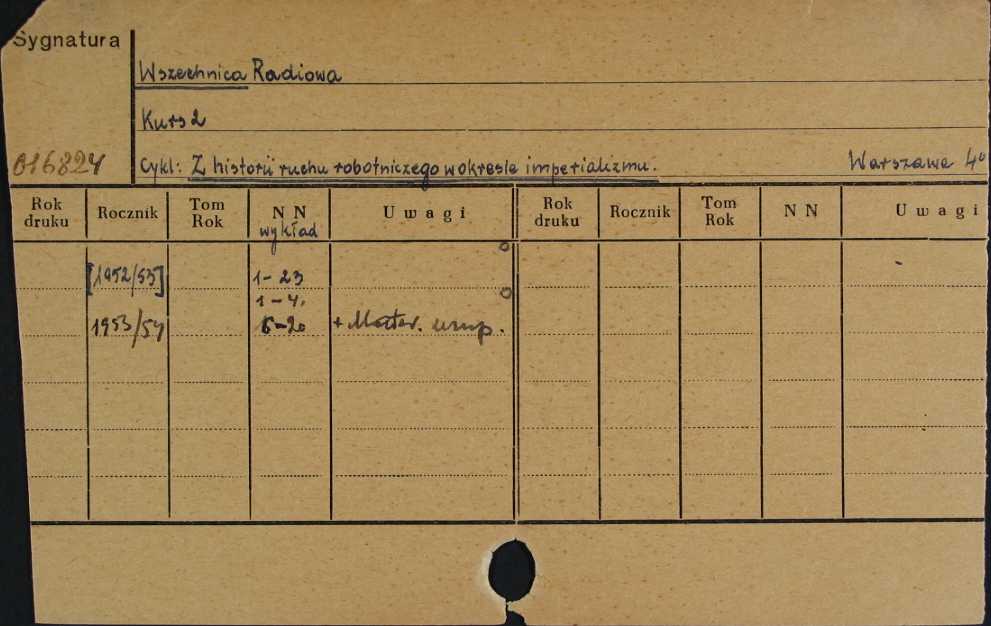 Sygnatura
Wszechnica Radiowa
Kurs 2
016824 Cykl: Z historii ruchu robotniczego w okresie imperializmu. Warszawa 4°
Rok druku Rocznik Tom Rok N N wykład U w a g i Rok druku Rocznik Tom Rok N N U w a g i
[1952/53] 1-23
1-4.
1953/54 5-20 + Mater. uzup.